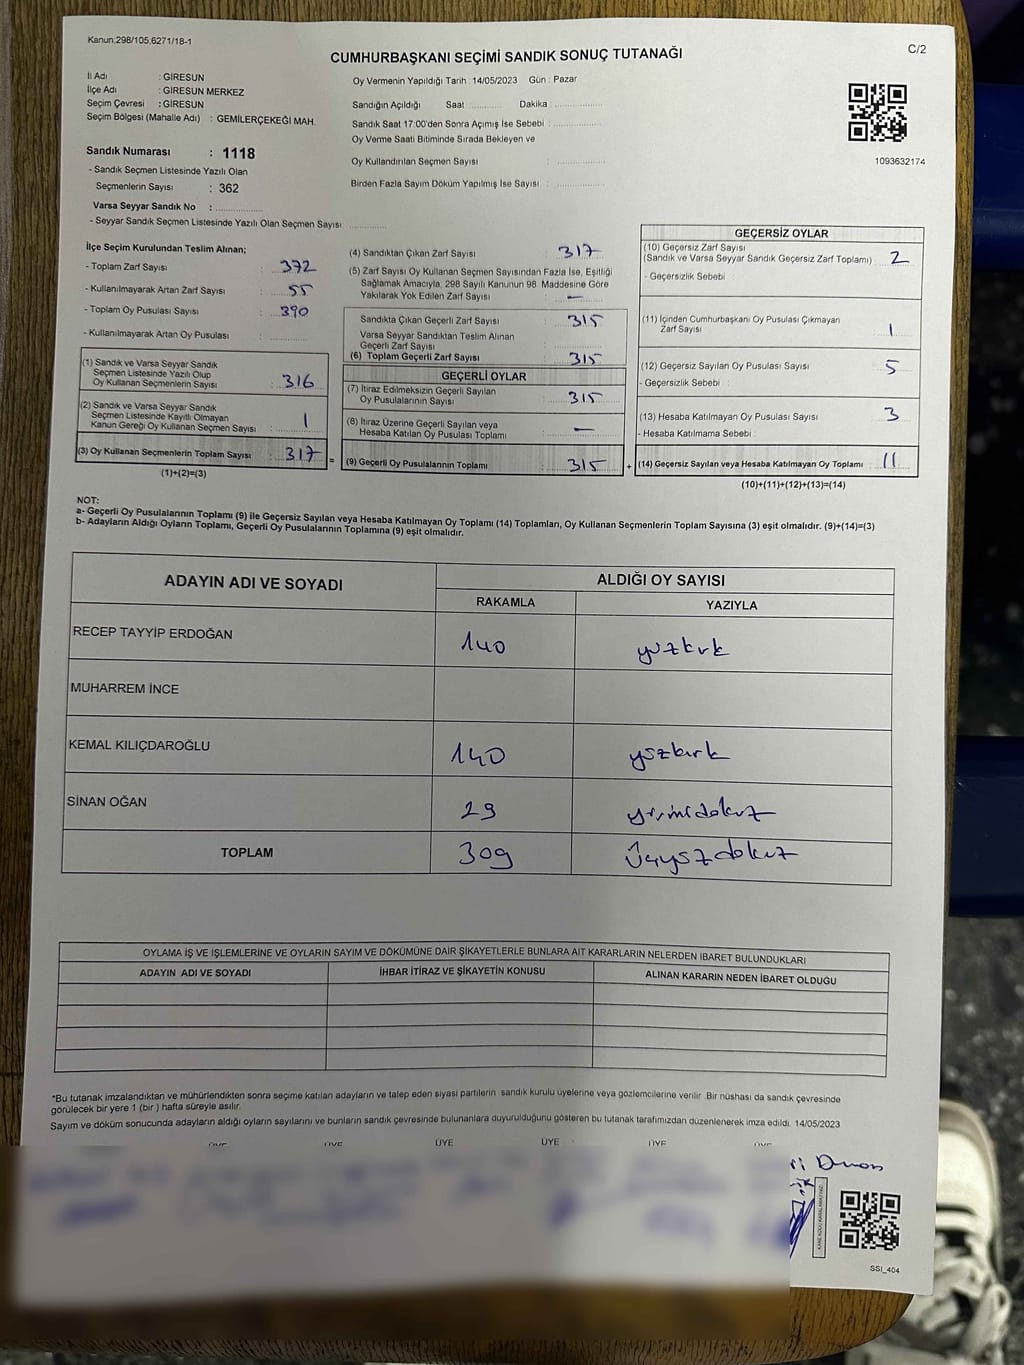 Kanun:298/105,6271/18-1
C/2
CUMHURBAŞKANI SEÇİMİ SANDIK SONUÇ TUTANAĞI
İl Adı : GİRESUN
İlçe Adı : GİRESUN MERKEZ
Seçim Çevresi : GİRESUN
Seçim Bölgesi (Mahalle Adı) : GEMİLERÇEKEĞİ MAH.
Sandık Numarası : 1118
- Sandık Seçmen Listesinde Yazılı Olan
Seçmenlerin Sayısı : 362
Varsa Seyyar Sandık No : ..............
- Seyyar Sandık Seçmen Listesinde Yazılı Olan Seçmen Sayısı ..............
Oy Vermenin Yapıldığı Tarih : 14/05/2023 Gün : Pazar
Sandığın Açıldığı Saat .......... Dakika : ..............
Sandık Saat 17:00'den Sonra Açımış İse Sebebi : ..............
Oy Verme Saati Bitiminde Sırada Bekleyen ve
Oy Kullandırılan Seçmen Sayısı : ..............
Birden Fazla Sayım Döküm Yapılmış İse Sayısı : ..............
1093632174
İlçe Seçim Kurulundan Teslim Alınan;
- Toplam Zarf Sayısı : 372
- Kullanılmayarak Artan Zarf Sayısı : 55
- Toplam Oy Pusulası Sayısı : 390
- Kullanılmayarak Artan Oy Pusulası : ..............
(1) Sandık ve Varsa Seyyar Sandık
Seçmen Listesinde Yazılı Olup
Oy Kullanan Seçmenlerin Sayısı : 316
(2) Sandık ve Varsa Seyyar Sandık
Seçmen Listesinde Kayıtlı Olmayan
Kanun Gereği Oy Kullanan Seçmen Sayısı : 1
(3) Oy Kullanan Seçmenlerin Toplam Sayısı : 317
(1)+(2)=(3)
=
(4) Sandıktan Çıkan Zarf Sayısı : 317
(5) Zarf Sayısı Oy Kullanan Seçmen Sayısından Fazla İse, Eşitliği
Sağlamak Amacıyla, 298 Sayılı Kanunun 98. Maddesine Göre
Yakılarak Yok Edilen Zarf Sayısı : —
Sandıkta Çıkan Geçerli Zarf Sayısı : 315
Varsa Seyyar Sandıktan Teslim Alınan
Geçerli Zarf Sayısı
(6) Toplam Geçerli Zarf Sayısı : 315
GEÇERLİ OYLAR
(7) İtiraz Edilmeksizin Geçerli Sayılan
Oy Pusulalarının Sayısı : 315
(8) İtiraz Üzerine Geçerli Sayılan veya
Hesaba Katılan Oy Pusulası Toplamı : —
(9) Geçerli Oy Pusulalarının Toplamı : 315
+
GEÇERSİZ OYLAR
(10) Geçersiz Zarf Sayısı
(Sandık ve Varsa Seyyar Sandık Geçersiz Zarf Toplamı) : 2
- Geçersizlik Sebebi :
(11) İçinden Cumhurbaşkanı Oy Pusulası Çıkmayan
Zarf Sayısı : 1
(12) Geçersiz Sayılan Oy Pusulası Sayısı : 5
- Geçersizlik Sebebi :
(13) Hesaba Katılmayan Oy Pusulası Sayısı : 3
- Hesaba Katılmama Sebebi :
(14) Geçersiz Sayılan veya Hesaba Katılmayan Oy Toplamı : 11
(10)+(11)+(12)+(13)=(14)
NOT:
a- Geçerli Oy Pusulalarının Toplamı (9) ile Geçersiz Sayılan veya Hesaba Katılmayan Oy Toplamı (14) Toplamları, Oy Kullanan Seçmenlerin Toplam Sayısına (3) eşit olmalıdır. (9)+(14)=(3)
b- Adayların Aldığı Oyların Toplamı, Geçerli Oy Pusulalarının Toplamına (9) eşit olmalıdır.
ADAYIN ADI VE SOYADI
ALDIĞI OY SAYISI
RAKAMLA YAZIYLA
RECEP TAYYİP ERDOĞAN 140 yüzkırk
MUHARREM İNCE
KEMAL KILIÇDAROĞLU 140 yüzkırk
SİNAN OĞAN 29 yirmidokuz
TOPLAM 309 Üçyüzdokuz
OYLAMA İŞ VE İŞLEMLERİNE VE OYLARIN SAYIM VE DÖKÜMÜNE DAİR ŞİKAYETLERLE BUNLARA AİT KARARLARIN NELERDEN İBARET BULUNDUKLARI
ADAYIN ADI VE SOYADI İHBAR İTİRAZ VE ŞİKAYETİN KONUSU ALINAN KARARIN NEDEN İBARET OLDUĞU
*Bu tutanak imzalandıktan ve mühürlendikten sonra seçime katılan adayların ve talep eden siyasi partilerin sandık kurulu üyelerine veya gözlemcilerine verilir. Bir nüshası da sandık çevresinde
görülecek bir yere 1 (bir) hafta süreyle asılır.
Sayım ve döküm sonucunda adayların aldığı oyların sayılarını ve bunların sandık çevresinde bulunanlara duyurulduğunu gösteren bu tutanak tarafımızdan düzenlenerek imza edildi. 14/05/2023
ÜYE ÜYE ÜYE ÜYE ÜYE ÜYE
SSI_404